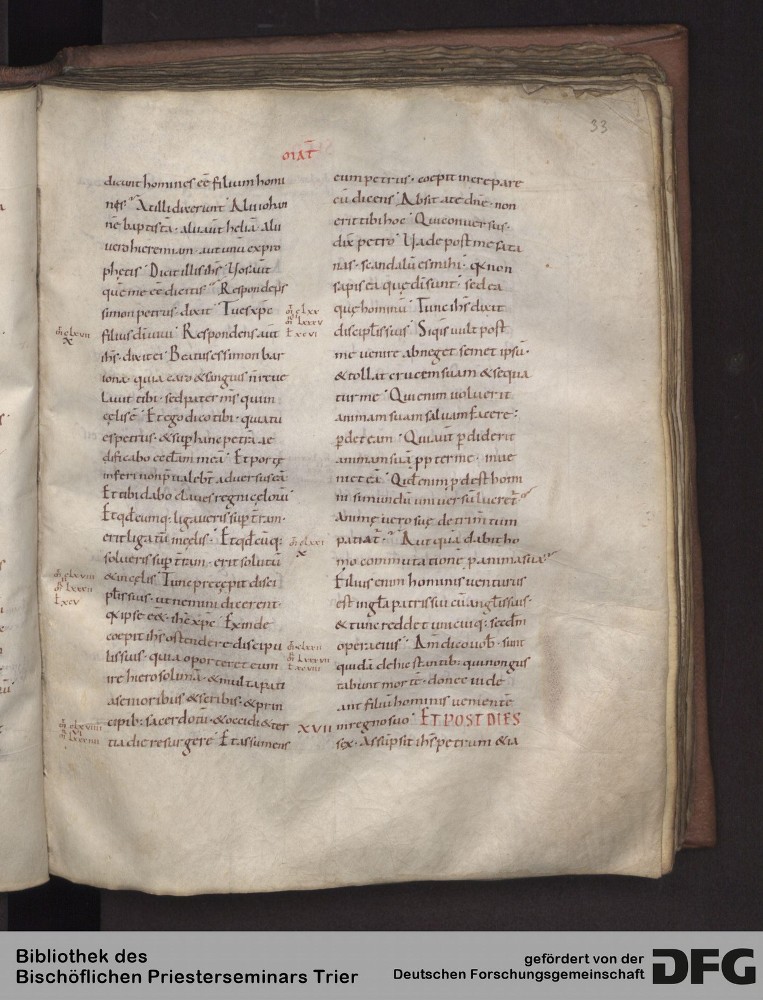 33
MAT
dicunt homines eē filium homi
nis · At illi dixerunt · Alii iohan
nē baptistā · alii aūt heliā · alii
vero hieremiam · aut unū ex pro
phetis · Dicit illis ihs · Vos aūt
quē me eē dicitis · Respondens
simon petrus · dixit · Tu es xp̄c
filius dī vivi · Respondens aūt
ihs · dixit ei · Beatus es simon bar
iona · quia caro & sanguis n̄ reve
lavit tibi · sed pater ms̄ qui in
cęlis ē · Et ego dico tibi · quia tu
es petrus · & sup hanc petrā ae
dificabo ecclam meā · Et portę
inferi non pvalebt adversus eā
Et tibi dabo claves regni cęlorū
Et qdcumq: ligaveris sup trām ·
erit ligatū in cęlis · Et qdcūq:
solveris sup trām · erit solutū
& in cęlis · Tunc pręcępit disci
płis suis · ut nemini dicerent ·
q̇ ipse eēt ihs xp̄c · Exinde
coepit ihs ostendere discipu
lis suis · quia oporteret eum
ire hierosolimā · & multa pati
a senioribus & scribis · & prin
cipib: sacerdotū · & occidi & ter
tia die resurgere · Et assumens
eum petrus · coepit increpare
eū dicens · Absit a te dnē · non
erit tibi hoc · Qui conversus ·
dix̄ petro · Vade post me sata
nas · scandalū es mihi · q̇ non
sapis ea quę dī sunt · sed ea
quę hominū · Tunc ihs dixit
discipłis suis · Siq̇s vult post
me venire abneget semet ipsū ·
& tollat crucem suam & sequa
tur me · Qui enim voluerit
animam suam salvam facere ·
pdet eam · Qui aūt pdiderit
animam suā pp ter me · inve
niet eā · Qd enim pdest homi
ni si mundū universū lucretur
animę vero suę detrimtum
patiat · Aut quā dabit ho
mo commutationē p anima sua
Filius enim hominis venturus
est in gła patris sui cū angłis suis ·
& tunc reddet unicuiq: secdm
opera eius · Am̄ dico vob · sunt
quidā de hic stantib: qui non gus
tabunt mortē · donec vide
ant filiū hominis venientē
in regno suo · ET POST DIES
XVII sex · Assūpsit ihs petrum & ia
Bibliothek des
Bischöflichen Priesterseminars Trier
gefördert von der
Deutschen Forschungsgemeinschaft
DFG